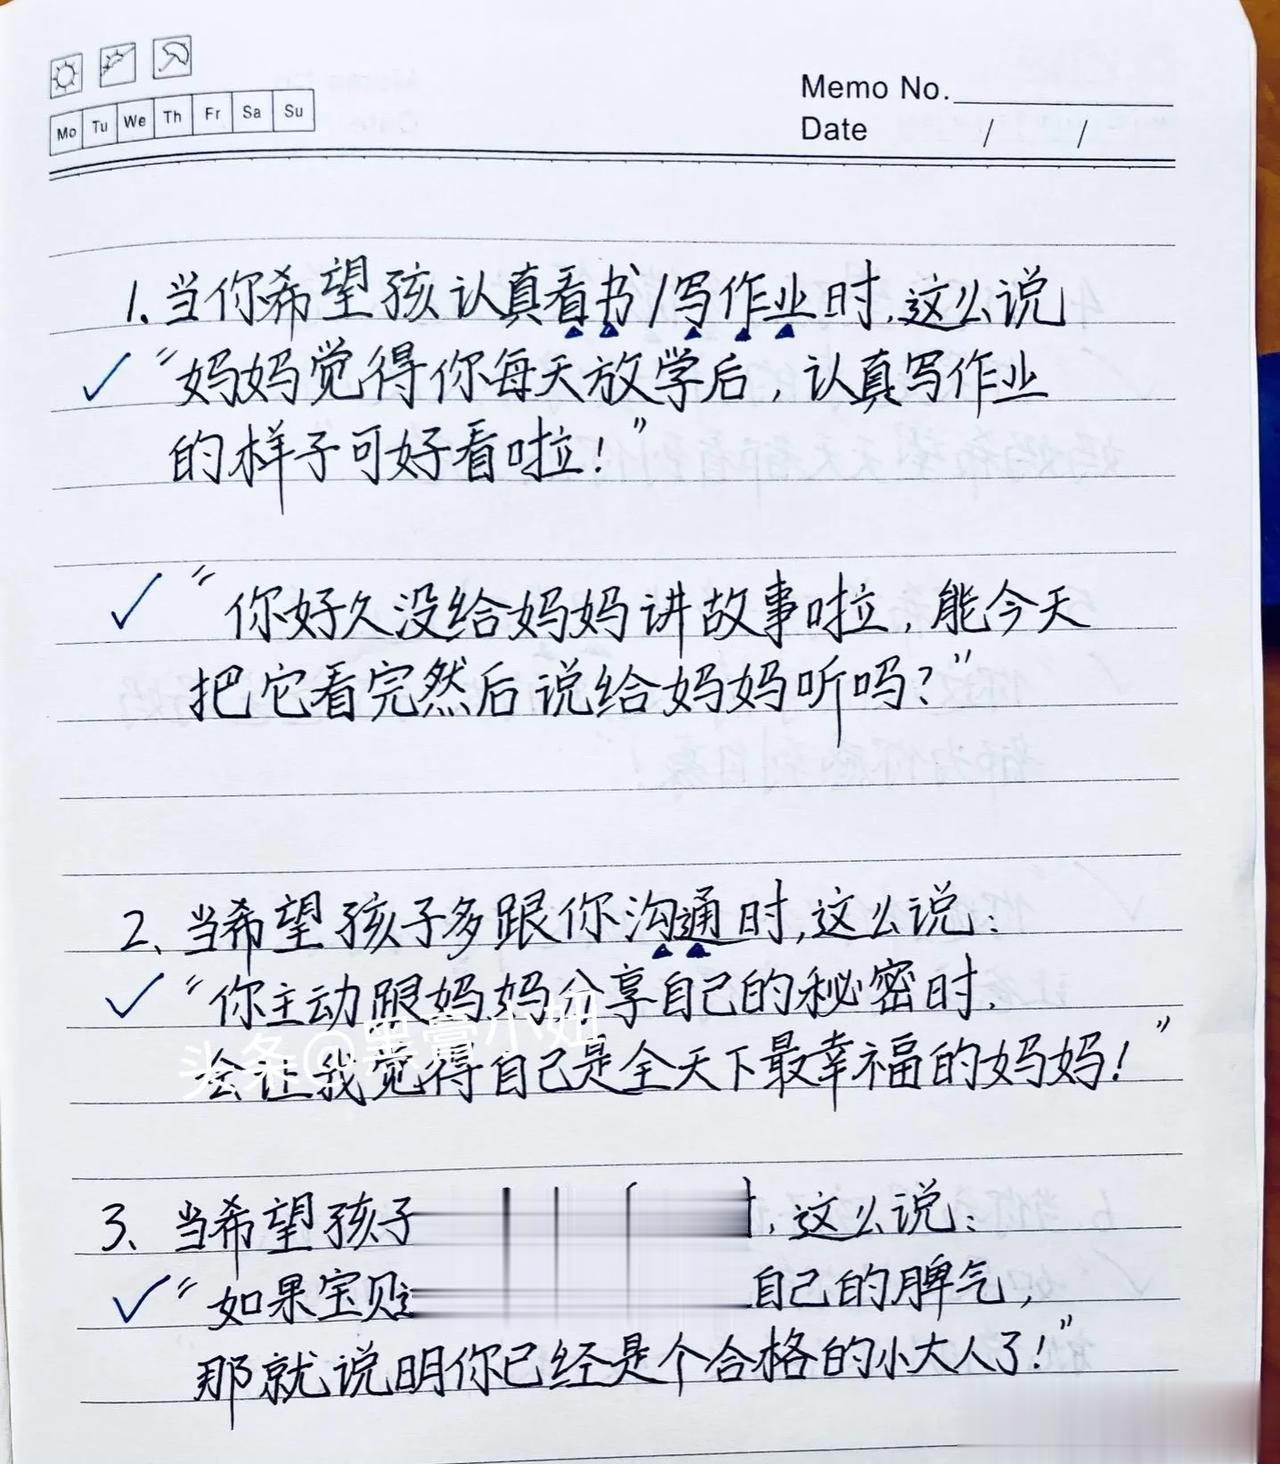 Mo Tu We Th Fr Sa Su
Memo No.
Date / /
1.当你希望孩认真看书/写作业时,这么说
“妈妈觉得你每天放学后,认真写作业
的样子可好看啦!”
“你好久没给妈妈讲故事啦,能今天
把它看完然后说给妈妈听吗?”
2、当希望孩子多跟你沟通时,这么说:
“你主动跟妈妈分享自己的秘密时,
会让我觉得自己是全天下最幸福的妈妈!”
头条@黑膏小妞
3、当希望孩子 ,这么说:
“如果宝贝 自己的脾气,
那就说明你已经是个合格的小大人了!”